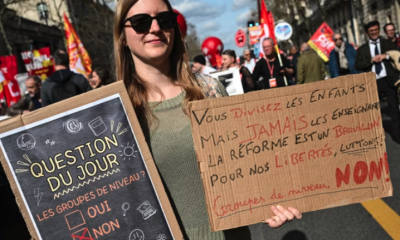 QUESTION
DU JOUR
LES GROUPES DE NIVEAU?
OUI
NON
VOUS DIVISEZ LES ENFANTS
MAIS JAMAIS LES ENSEIGNANTS
LA RÉFORME EST UN BROUILLON
POUR NOS LIBERTÉS, LUTTONS!
Groupes de niveau NON!